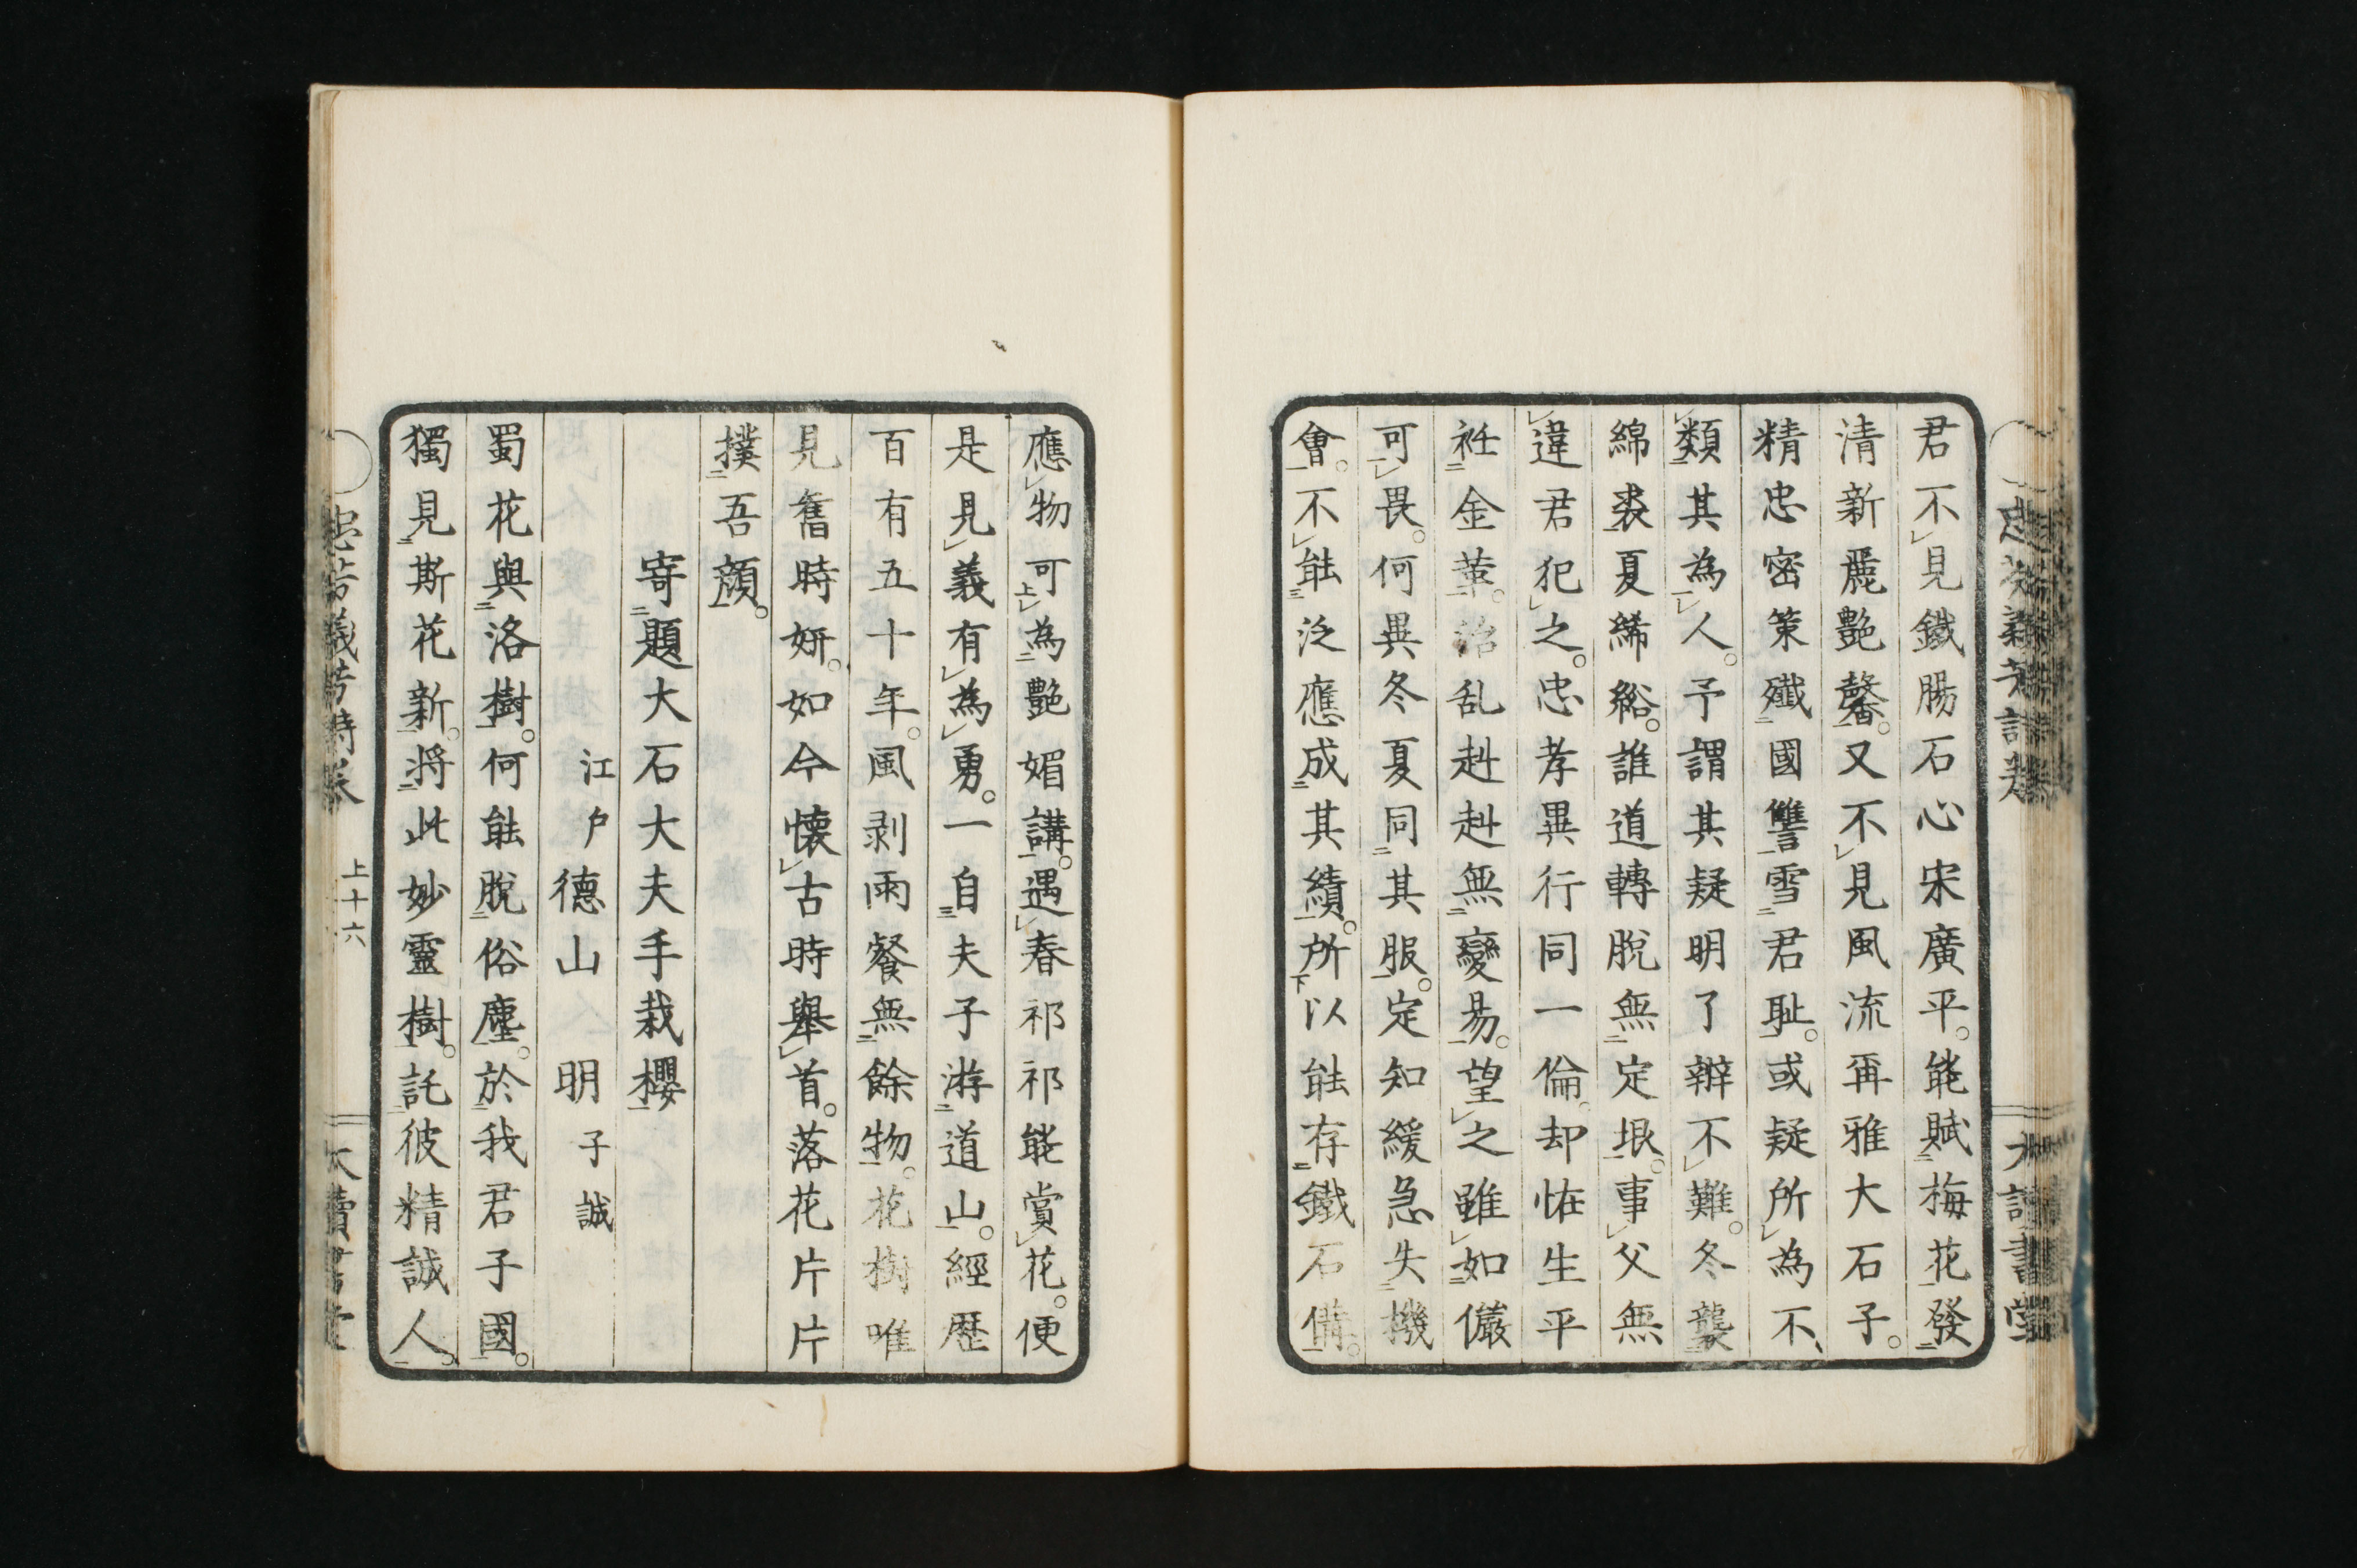 君不見鐵腸石心宋廣平。能賦梅花發
清新麗艶馨。又不見風流再雅大石子。
精忠密策殱國讐雪君恥。或疑所為不
類其為人。予謂其疑明了辨不難。冬襲
綿裘夏絺綌。誰道轉脫無定垠。事父無
違君犯之。忠孝異行同一倫。却恠生平
衽金革。治乱赳赳無變易。望之雖如儼
可畏。何異冬夏同其服。定知緩急失機
會。不能泛應成其績。所以能存鐵石備。
應物可為艶媚講。遇春祁祁能賞花。便
是見義有為勇。一自夫子游道山。經歷
百有五十年。風剥雨餐無餘物。花樹唯
見舊時姸。如今懷古時舉首。落花片片
撲吾顔。
寄題大石大夫手栽櫻
江戶 德山 明 子誠
蜀花與洛樹。何能脫俗塵。於我君子國。
獨見斯花新。将此妙靈樹。託彼精誠人。
忠芳義芳詩巻 上十六